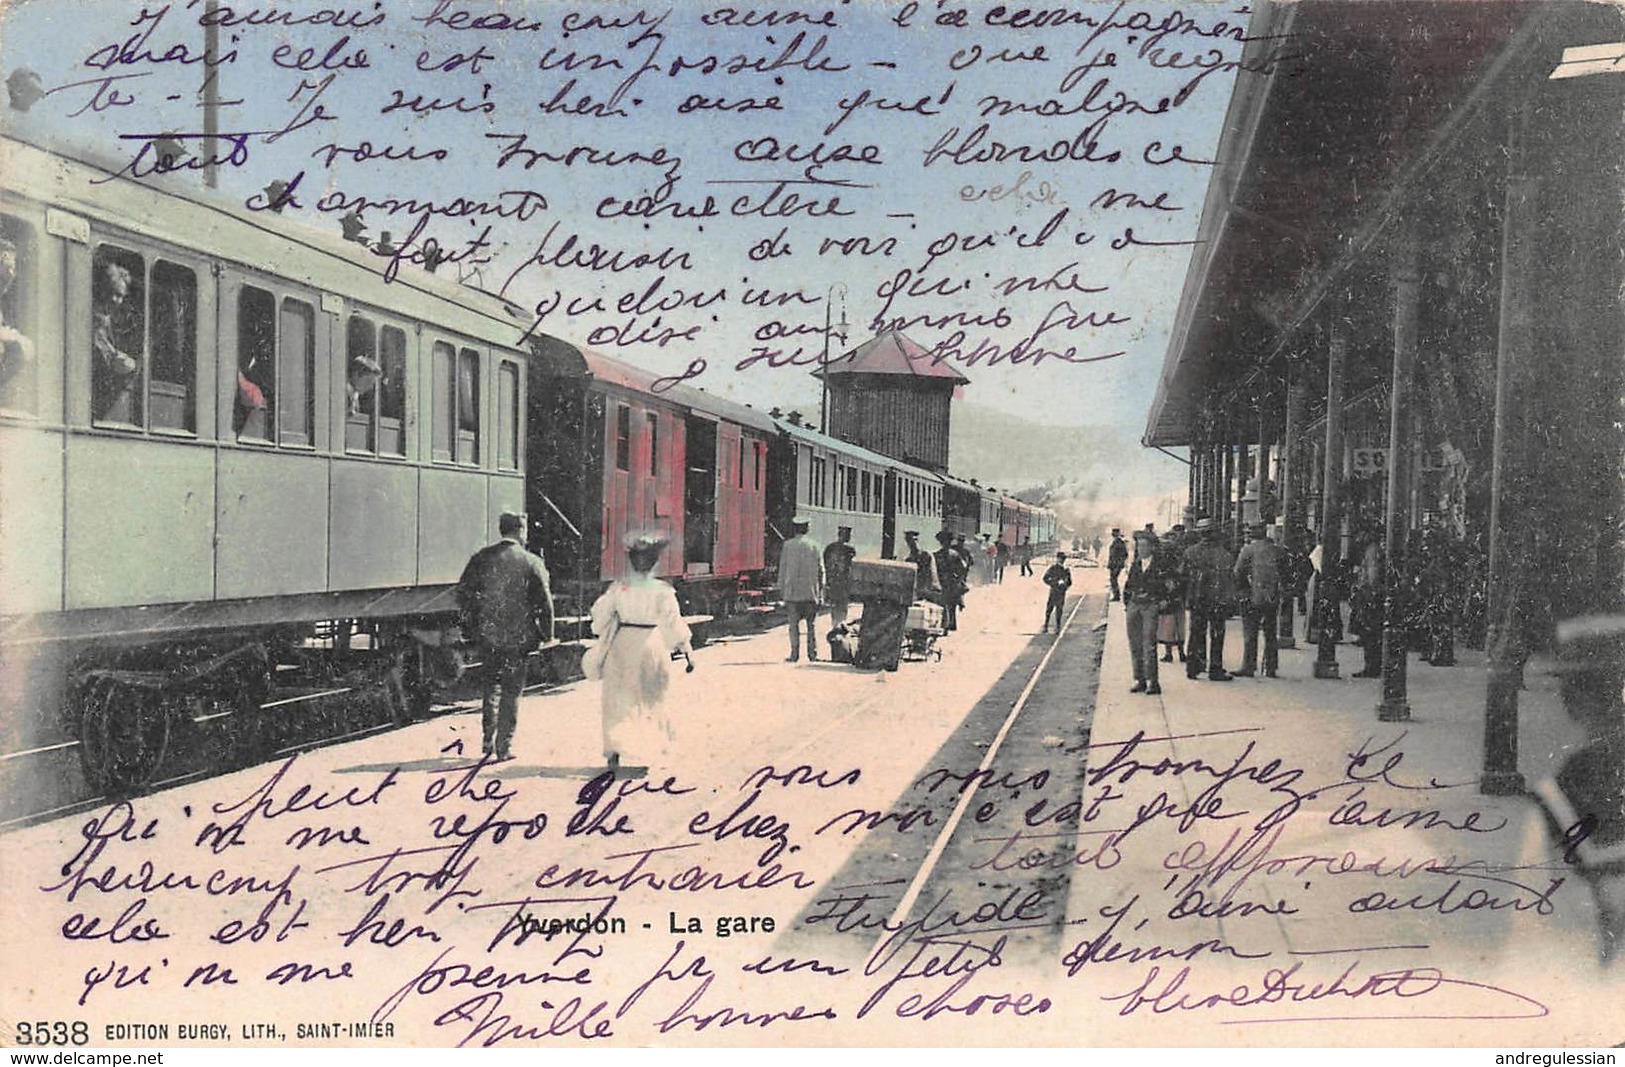 j'aurais beaucoup aimé l'accompagner
mais cela est impossible - que je regret
te - ! - Je suis heri aisé que malgré
tout vous trouvez aux blondes ce
charmant caractère - cela me
fait plaisir de voir qu'il y a
quelqu'un qui me
dise au moins que
je suis
SO
peut être que vous vous trompez. Ce
qu'on me reproche chez moi c'est que j'aime
beaucoup trop contrarier tout approuver
cela est trop stupide - j'aime autant
Yverdon - La gare
qu'on me prenne pr un petit démon -
Mille bonnes choses
3538 EDITION BURGY, LITH., SAINT-IMIER
www.delcampe.net
andregulessian